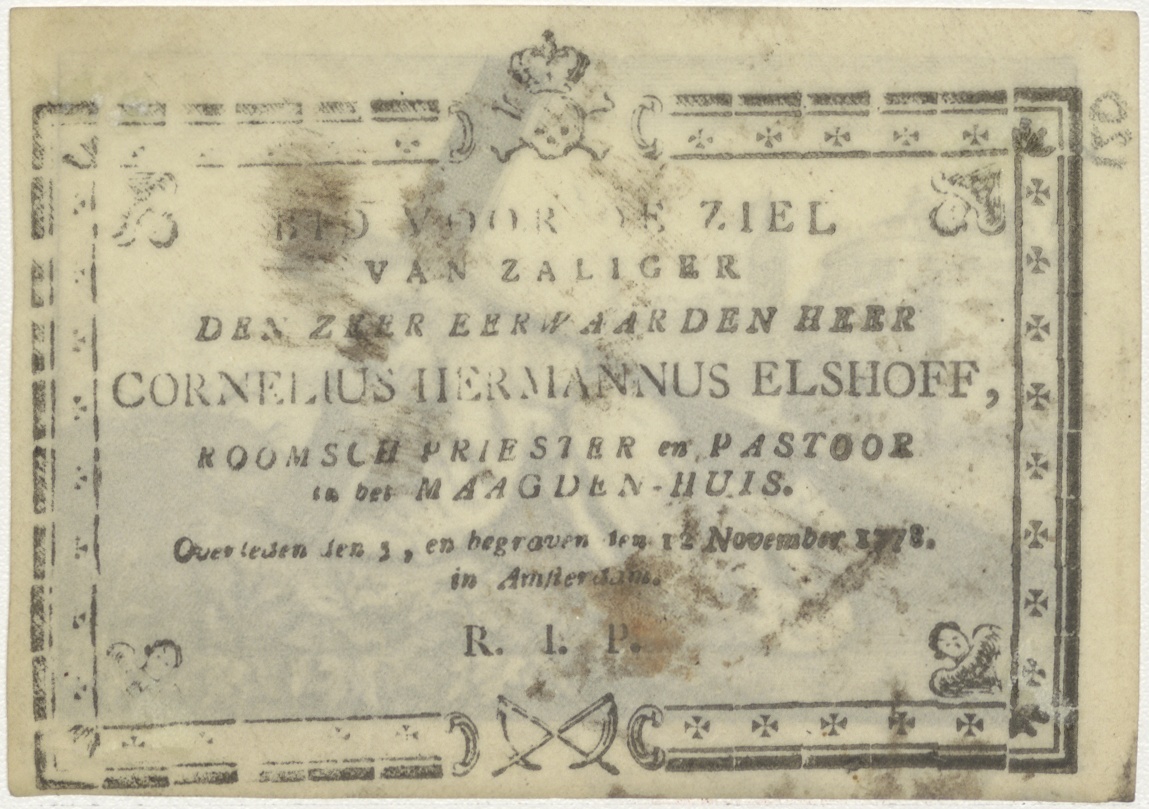 BID VOOR DE ZIEL
VAN ZALIGER
DEN ZEER EERWAARDEN HEER
CORNELIUS HERMANNUS ELSHOFF,
ROOMSCH PRIESTER en PASTOOR
in het MAAGDEN-HUIS.
Overleden den 3, en begraven den 12 November 1778.
in Amsterdam.
R. I. P.